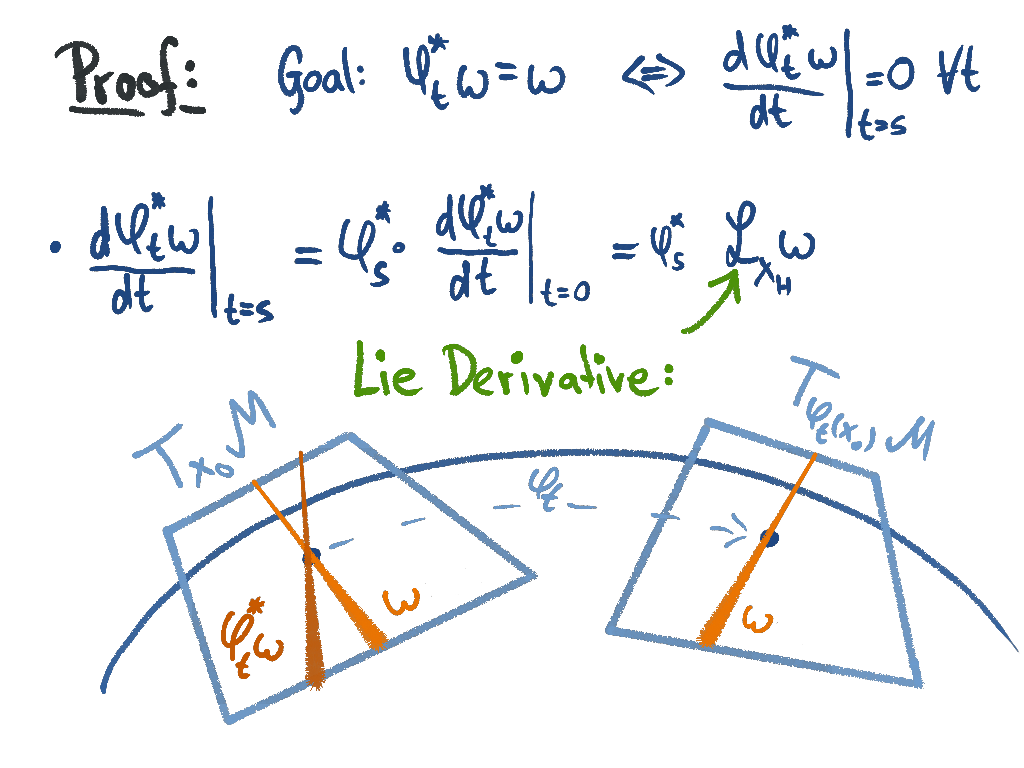 Proof: Goal: φ_t^* ω = ω ⟺ dφ_t^* ω / dt |_{t=s} = 0 ∀t
· dφ_t^* ω / dt |_{t=s} = φ_s^* · dφ_t^* ω / dt |_{t=0} = φ_s^* ℒ_{X_H} ω
Lie Derivative:
T_{x_0} M
T_{φ_t(x_0)} M
φ_t
φ_t^* ω
ω
ω